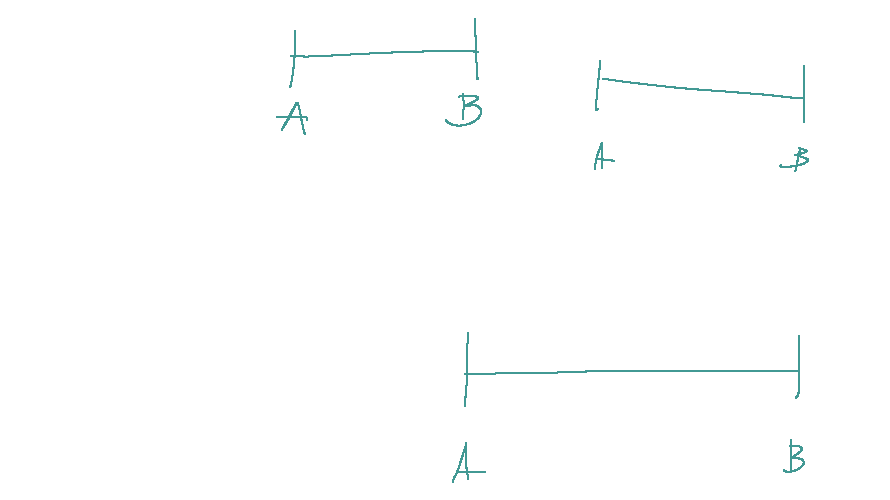 A B
A B
A B